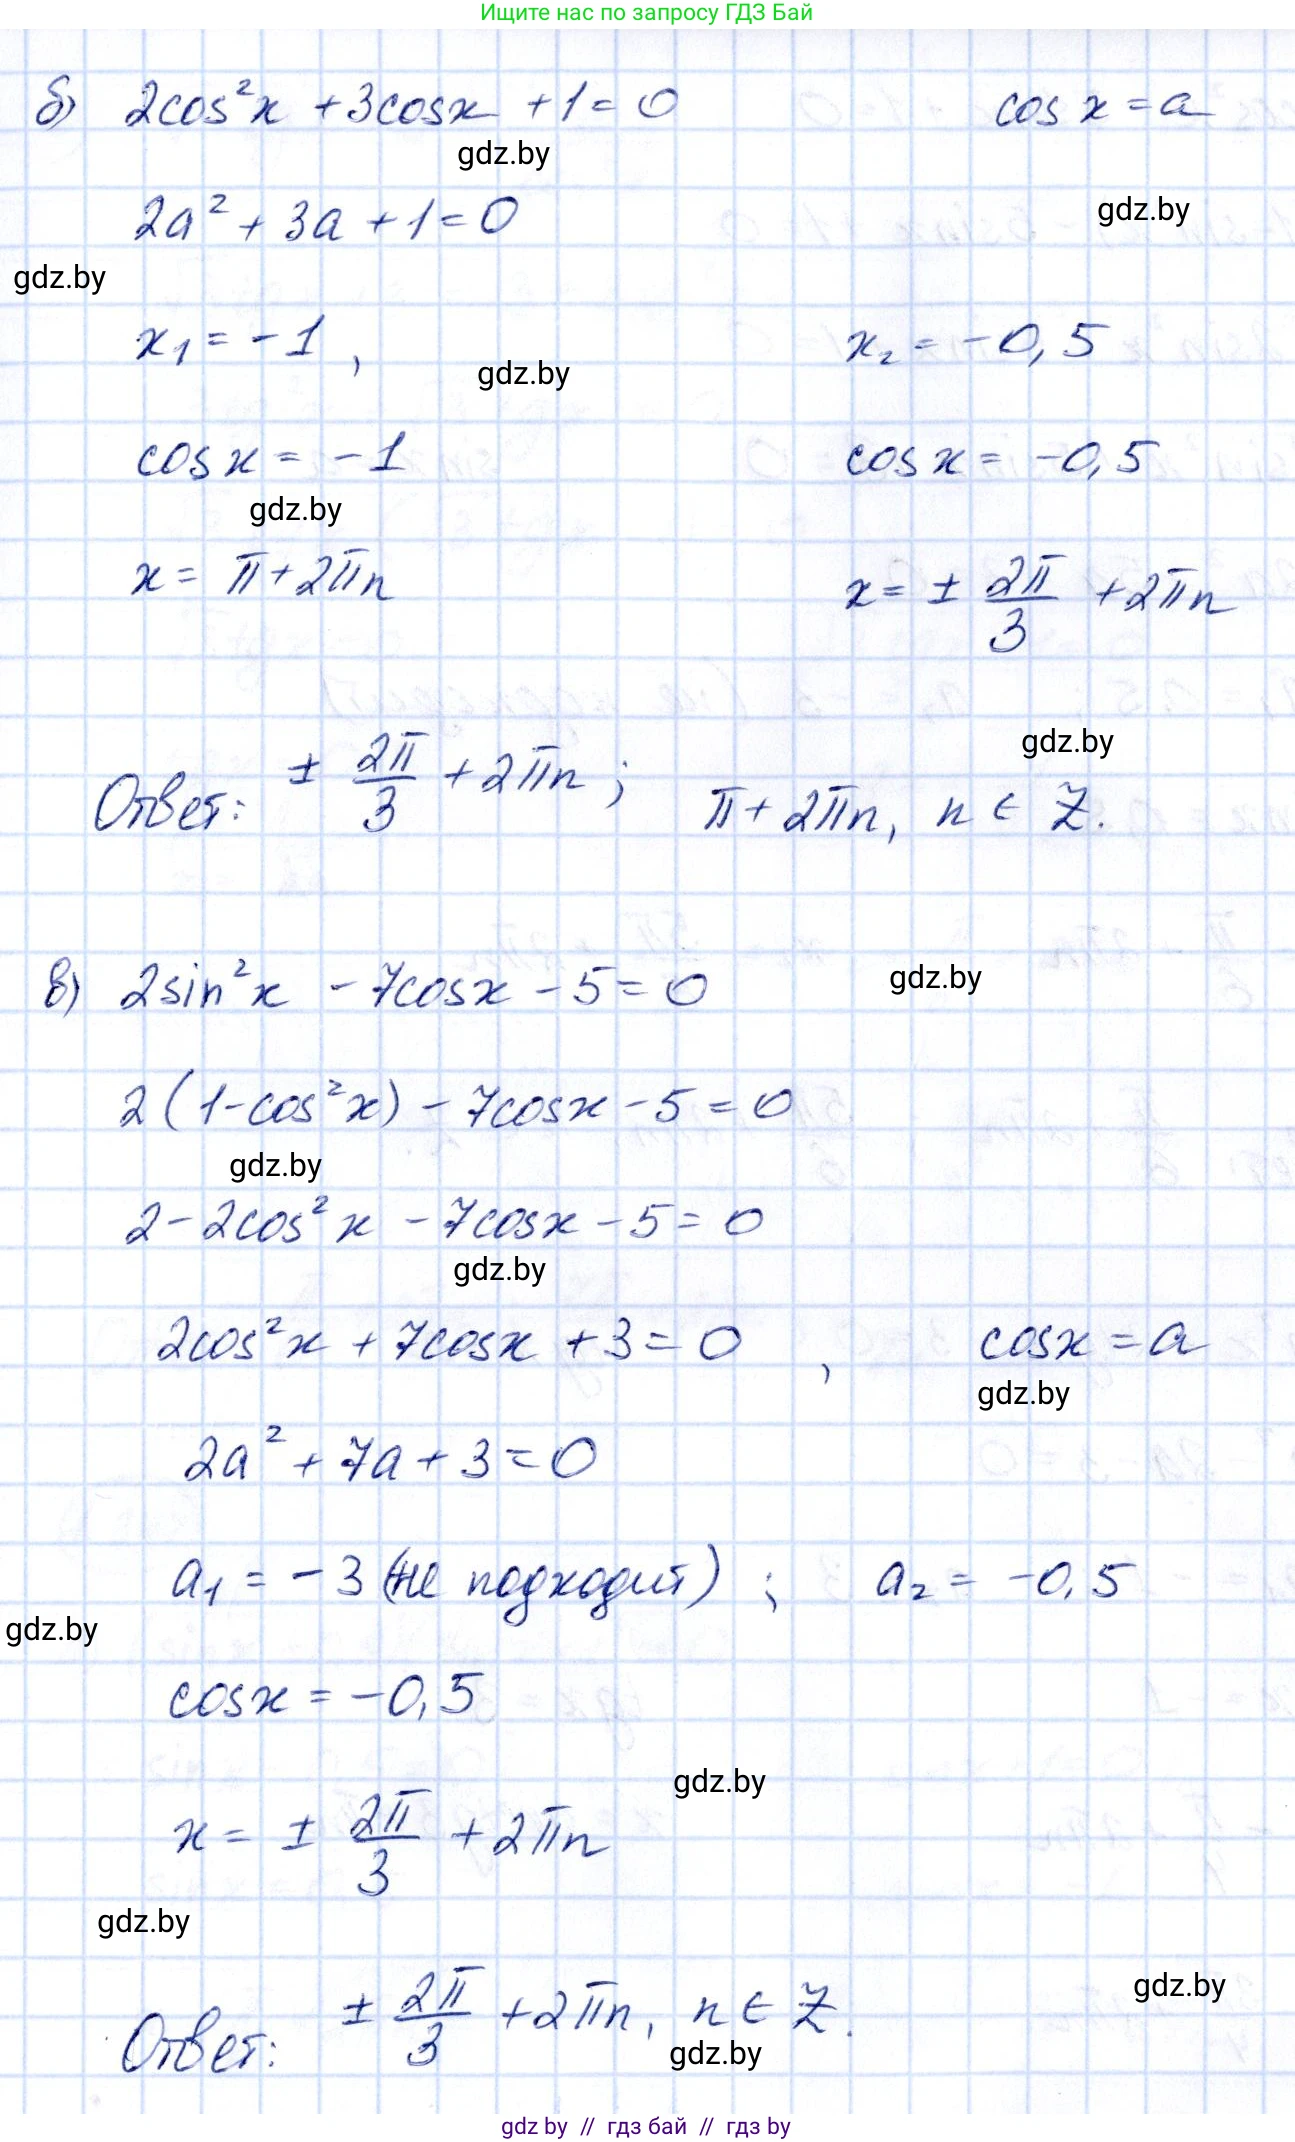 Ищите нас по запросу ГДЗ Бай
б) 2cos²x + 3cosx + 1 = 0 cos x = a
gdz.by
2a² + 3a + 1 = 0
gdz.by
gdz.by
x₁ = -1 , x₂ = -0,5
gdz.by
cosx = -1 cosx = -0,5
gdz.by
x = π + 2πn x = ± 2π/3 + 2πn
gdz.by
Ответ: ± 2π/3 + 2πn ; π + 2πn, n ∈ Z.
в) 2sin²x - 7cosx - 5 = 0
gdz.by
2(1-cos²x) - 7cosx - 5 = 0
gdz.by
2 - 2cos²x - 7cosx - 5 = 0
gdz.by
2cos²x + 7cosx + 3 = 0 , cosx = a
gdz.by
2a² + 7a + 3 = 0
a₁ = -3 (не подходит) ; a₂ = -0,5
gdz.by
cosx = -0,5
gdz.by
x = ± 2π/3 + 2πn
gdz.by
gdz.by
Ответ: ± 2π/3 + 2πn, n ∈ Z.
gdz.by
gdz by // гдз бай // гдз by